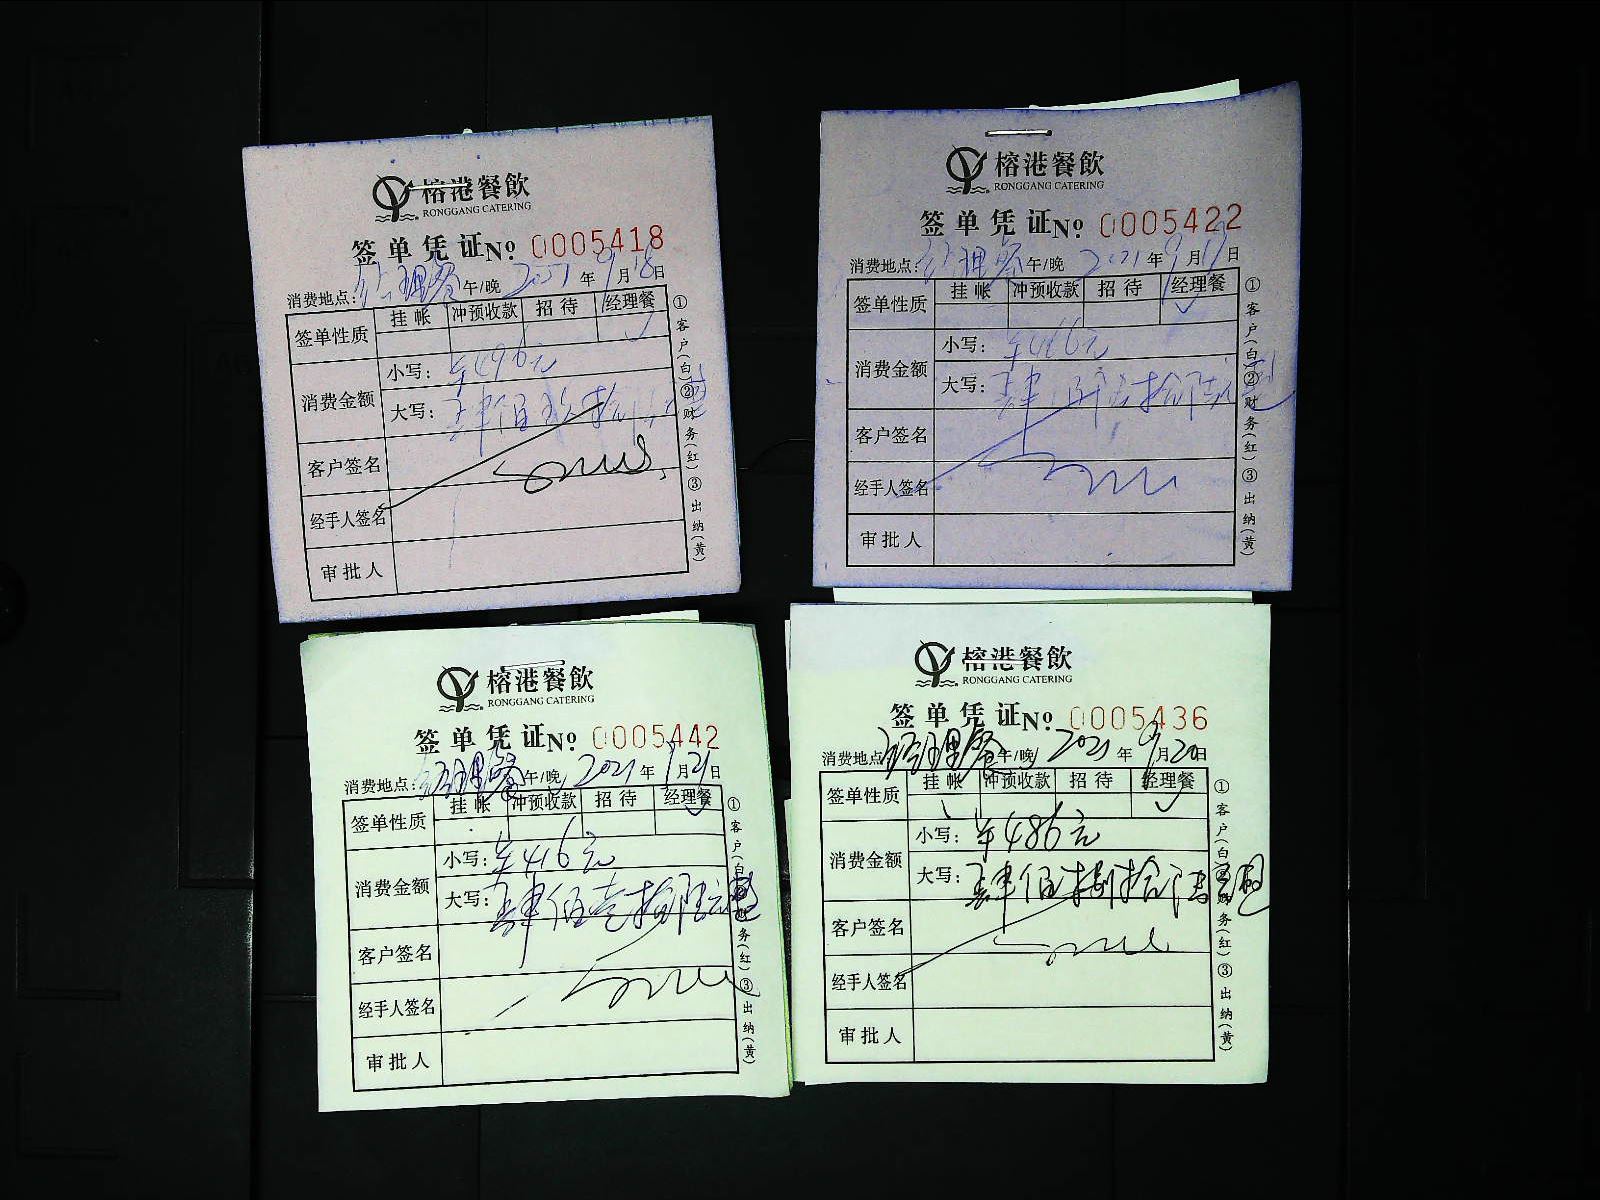 榕港餐飲
RONGGANG CATERING
签单凭证 № 0005418
消费地点: 经理餐 午/晚 2021年9月18日
签单性质 挂帐 冲预收款 招待 经理餐 ✓
消费金额 小写: ¥496元
大写: 肆佰玖拾
客户签名
经手人签名
审批人
①客户(白)②财务(红)③出纳(黄)
榕港餐飲
RONGGANG CATERING
签单凭证 № 0005422
消费地点: 经理餐 午/晚 2021年9月 日
签单性质 挂帐 冲预收款 招待 经理餐 ✓
消费金额 小写: ¥466元
大写: 肆佰陆拾陆元整
客户签名
经手人签名
审批人
①客户(白)②财务(红)③出纳(黄)
榕港餐飲
RONGGANG CATERING
签单凭证 № 0005442
消费地点: 经理餐 午/晚 2021年9月21日
签单性质 挂帐 冲预收款 招待 经理餐 ✓
消费金额 小写: ¥416元
大写: 肆佰壹拾陆元整
客户签名
经手人签名
审批人
①客户(白)②财务(红)③出纳(黄)
榕港餐飲
RONGGANG CATERING
签单凭证 № 0005436
消费地点: 经理餐 午/晚 2021年9月20日
签单性质 挂帐 冲预收款 招待 经理餐 ✓
消费金额 小写: ¥486元
大写: 肆佰捌拾陆元整
客户签名
经手人签名
审批人
①客户(白)②财务(红)③出纳(黄)